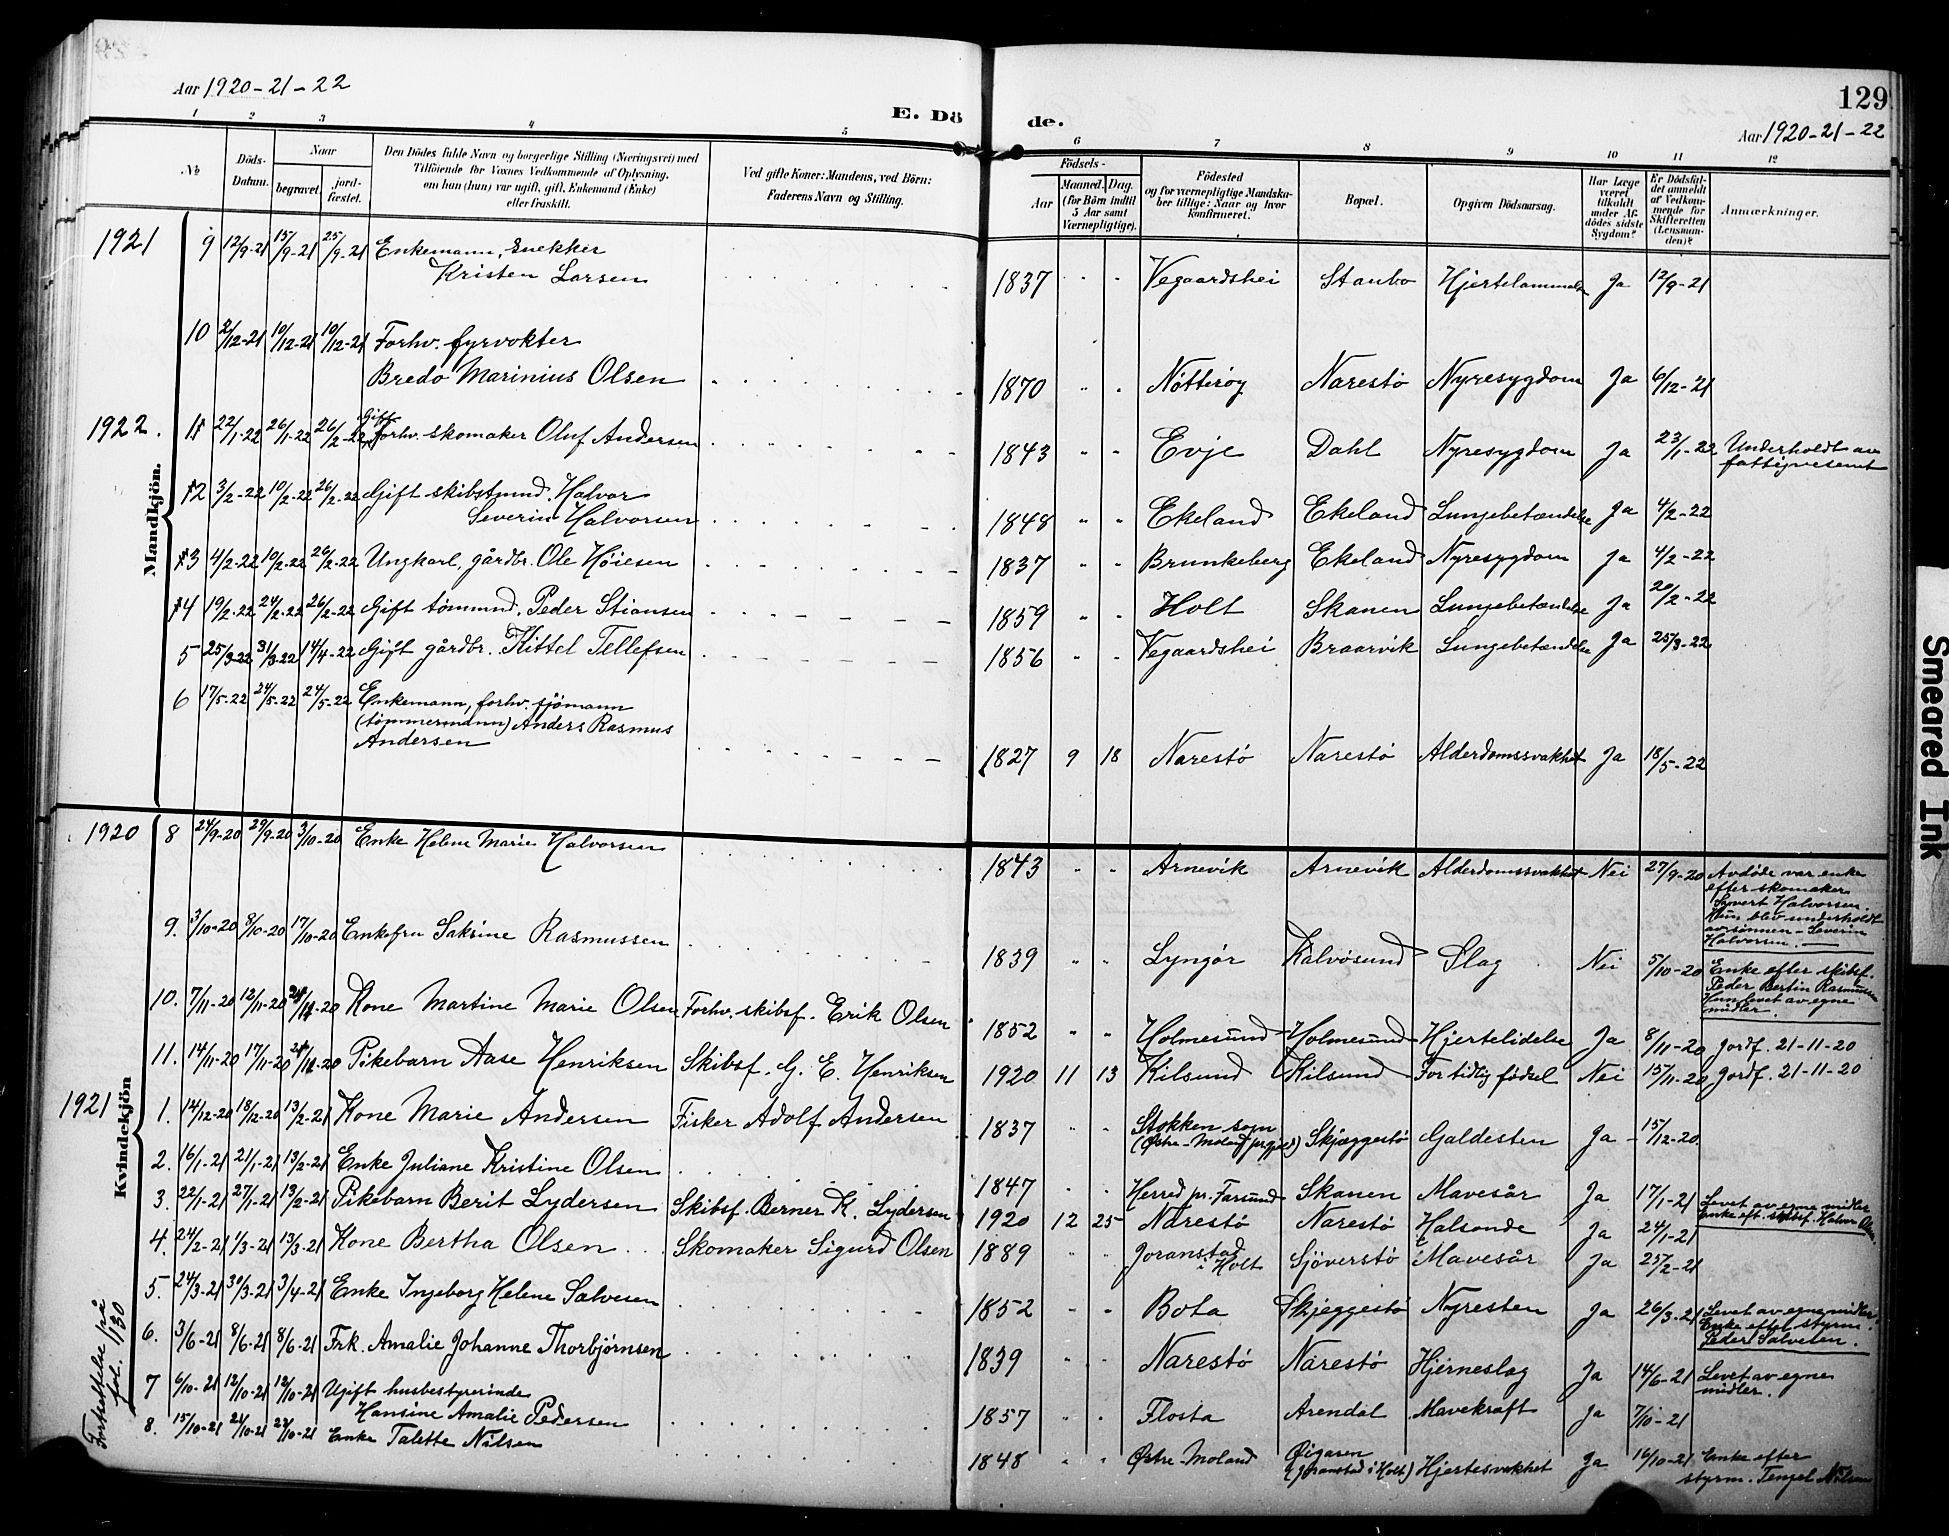 Aar 1920-21-22
E. Dö
de.
129
Aar 1920-21-22
1 2 3 4 5 6 7 8 9 10 11 12
No
Döds-Datum.
Naar
begravet.
jordfæstet.
Den Dödes fulde Navn og borgerlige Stilling (Næringsvei) med
Tilföiende for Voxnes Vedkommende af Oplysning,
om han (hun) var ugift, gift, Enkemand (Enke)
eller fraskilt.
Ved gifte Koner: Mandens, ved Börn:
Faderens Navn og Stilling.
Födsels-
Aar
Maaned. Dag.
(for Börn indtil
5 Aar samt
Værnepligtige).
Födested
og for værnepligtige Mandskaber tillige: Naar og hvor
konfirmeret.
Bopæl.
Opgiven Dödsaarsag.
Har Læge været tilkaldt under Afdödes sidste Sygdom?
Er Dödsfaldet anmeldt af Vedkommende for Skifteretten (Lensmanden)?
Anmærkninger.
Mandkjön.
1921 9 12/9-21 15/9-21 25/9-21 Enkemann, snekker
Kristen Larsen 1837 Vegaardshei Staubo Hjertelammelse Ja 12/9-21
10 2/12-21 10/12-21 10/12-21 Forhv. fyrvokter
Bredo Marinius Olsen 1870 Nötteröy Narestö Nyresygdom Ja 6/12-21
1922. 1 22/1-22 26/1-22 26/2-22 Gift forhv. skomaker Oluf Andersen 1843 Evje Dahl Nyresygdom Ja 23/1-22 Underholdt av
fattigvesenet
2 3/2-22 10/2-22 26/2-22 Gift skibstmmd. Halvor
Severin Halvorsen 1848 Ekeland Ekeland Lungebetændelse Ja 4/2-22
3 4/2-22 10/2-22 26/2-22 Ungkarl, gårdbr. Ole Høiesen 1837 Brunkeberg Ekeland Nyresygdom Ja 4/2-22
4 19/2-22 24/2-22 26/2-22 Gift tömmmd. Peder Stiansen 1859 Holt Skanen Lungebetændelse Ja 20/2-22
5 25/3-22 31/3-22 14/4-22 Gift gårdbr. Kittel Tellefsen 1856 Vegaardshei Braarvik Lungebetændelse Ja 25/3-22
6 17/5-22 24/5-22 24/5-22 Enkemann, forhv. sjömann
(tømmermann) Anders Rasmus
Andersen 1827 9 18 Narestö Narestö Alderdomssvakhet Ja 18/5-22
Kvindekjön
1920 8 24/9-20 29/9-20 3/10-20 Enke Helene Marie Halvorsen 1843 Arnevik Arnevik Alderdomssvakhet Nei 27/9-20 Avdöde var enke
efter skomaker
Sivert Halvorsen.
Hun blev underholdt
av sönnen - Severin
Halvorsen.
9. 3/10-20 8/10-20 17/10-20 Enkefru Sakrine Rasmussen 1839 Lyngør Kalvøsund Slag Nei 5/10-20 Enke efter skibsf.
Peder Bertin Rasmussen
Hun levet av egne
midler.
10. 7/11-20 12/11-20 /11-20 Kone Martine Marie Olsen Forhv. skibsf. Erik Olsen 1852 Holmesund Holmesund Hjertelidelse Ja 8/11-20 Jordf. 21-11-20
11. 14/11-20 17/11-20 /11-20 Pikebarn Aase Henriksen Skibsf. G. E. Henriksen 1920 11 13 Kilsund Kilsund For tidlig födsel Nei 15/11-20 Jordf. 21-11-20
1921 1. 14/12-20 18/12-20 13/2-21 Kone Marie Andersen Fisker Adolf Andersen 1837 Stokken sogn
(Østre-Moland prgjeld) Skjæggestö Galdesten Ja 15/12-20
2. 16/1-21 21/1-21 13/2-21 Enke Juliane Kristine Olsen 1847 Herred pr. Farsund Skanen Mavesår Ja 17/1-21 Levet av egne midler
enke eft. skibsf. Halvor Olsen.
3. 22/1-21 27/1-21 13/2-21 Pikebarn Berit Lydersen Skibsf. Berner K. Lydersen 1920 12 25 Narestö Narestö Halsonde Ja 24/1-21
4. 24/2-21 1/3-21 13/3-21 Kone Bertha Olsen Skomaker Sigurd Olsen 1889 Joranstad
i Holt Sjöverstö Mavesår Ja 25/2-21
5. 24/3-21 30/3-21 3/4-21 Enke Ingeborg Helene Salvesen 1852 Bota Skjeggestö Nyresten Ja 26/3-21 Levet av egne midler.
Enke efter styrm.
Peder Salvesen.
6. 3/6-21 8/6-21 8/6-21 Frk. Amalie Johanne Thorbjørnsen 1839 Narestö Narestö Hjerneslag Ja 14/6-21 Levet av egne
midler.
7 6/10-21 12/10-21 12/10-21 Ugift husbestyrerinde
Hansine Amalie Pedersen 1857 Flosta Arendal Mavekräft Ja 7/10-21
8. 15/10-21 21/10-21 23/10-21 Enke Talette Nilsen 1848 Østre-Moland Øigaren
(Joranstad i Holt) Hjertesvakhet Ja 16/10-21 Enke efter
styrm. Tengel Nilsen
Fortsettelse på
fol. 130
Smeared Ink